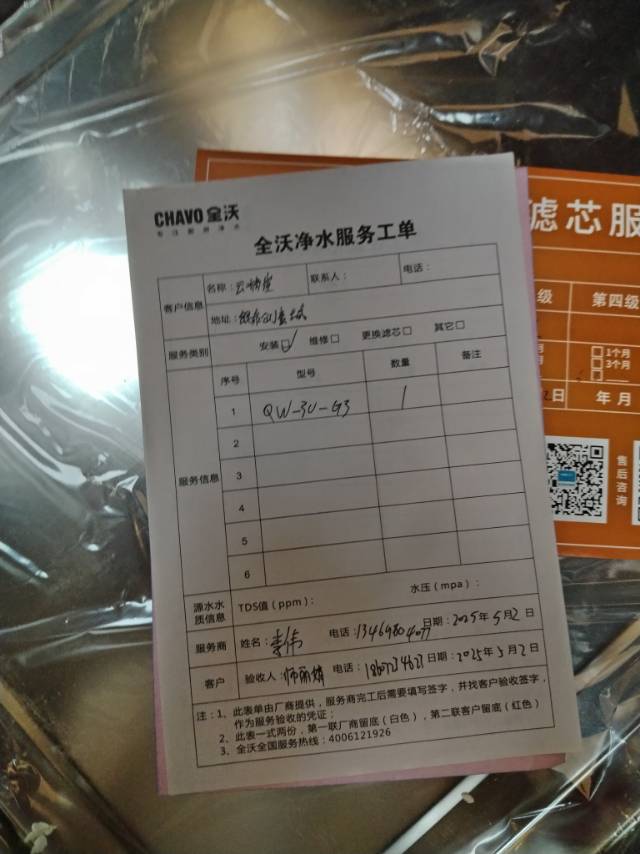 CHAVO 全沃
专注厨房净水
全沃净水服务工单
客户信息 名称： 联系人： 电话：
地址：
服务类别 安装☑ 维修□ 更换滤芯□ 其它□
服务信息 序号 型号 数量 备注
1 QW-3U-G3 1
2
3
4
5
6
源水水质信息 TDS值（ppm）： 水压（mpa）：
服务商 姓名：李伟 电话：13469804077 日期：2025年5月2日
客户 验收人：师丽娟 电话： 日期：2025年5月2日
注：1、此表单由厂商提供，服务商完工后需要填写签字，并找客户验收签字，
作为服务验收的凭证；
2、此表一式两份，第一联厂商留底（白色），第二联客户留底（红色）
3、全沃全国服务热线：4006121926
滤芯服
级 第四级
月 □1个月
月 □3个月
日 年 月
售后咨询